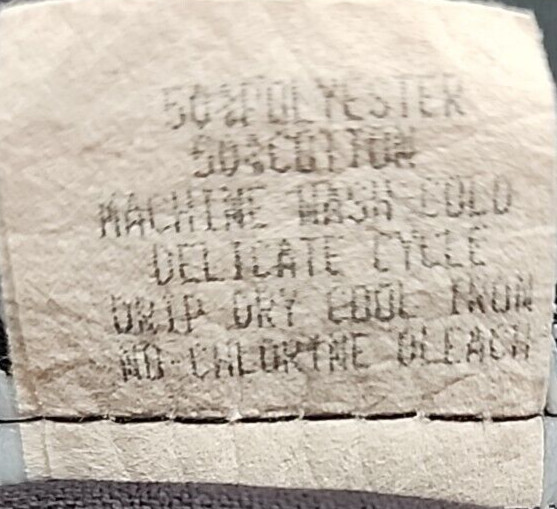 50%POLYESTER
50%COTTON
MACHINE WASH COLD
DELICATE CYCLE
DRIP DRY COOL IRON
NO CHLORINE BLEACH